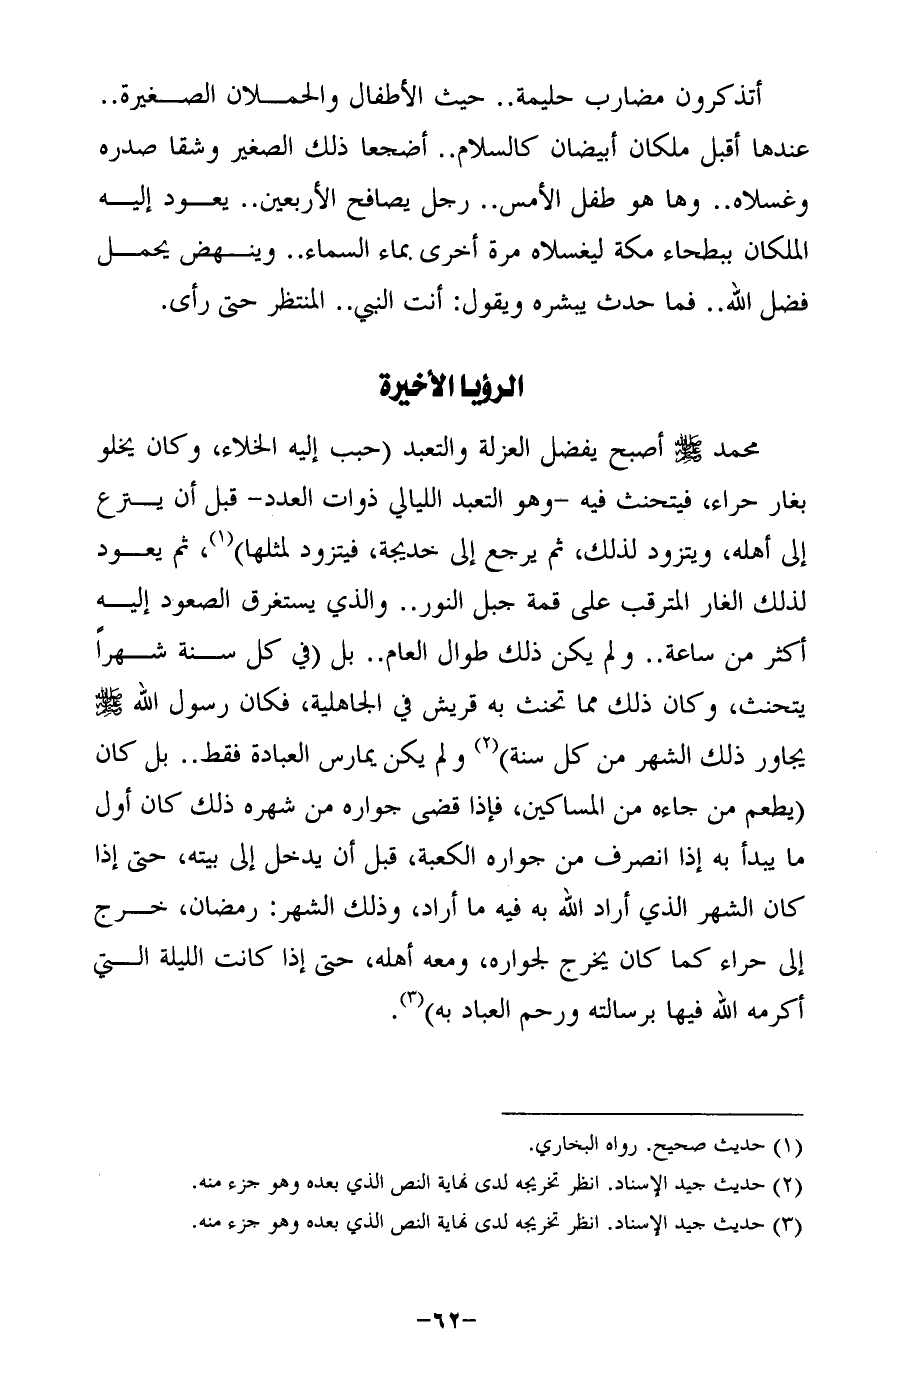 أتذكرون مضارب حليمة.. حيث الأطفال والحملان الصغيرة..
عندها أقبل ملكان أبيضان كالسلام.. أضجعا ذلك الصغير وشقا صدره
وغسلاه.. وها هو طفل الأمس.. رجل يصافح الأربعين.. يعود إليه
الملكان ببطحاء مكة ليغسلاه مرة أخرى بماء السماء.. وينهض يحمل
فضل الله.. فما حدث يبشره ويقول: أنت النبي.. المنتظر حتى رأى.
الرؤيا الأخيرة
محمد ﷺ أصبح يفضل العزلة والتعبد (حبب إليه الخلاء، وكان يخلو
بغار حراء، فيتحنث فيه -وهو التعبد الليالي ذوات العدد- قبل أن ينزع
إلى أهله، ويتزود لذلك، ثم يرجع إلى خديجة، فيتزود لمثلها)(١)، ثم يعود
لذلك الغار المترقب على قمة جبل النور.. والذي يستغرق الصعود إليه
أكثر من ساعة.. ولم يكن ذلك طوال العام.. بل (في كل سنة شهراً
يتحنث، وكان ذلك مما تحنث به قريش في الجاهلية، فكان رسول الله ﷺ
يجاور ذلك الشهر من كل سنة)(٢) ولم يكن يمارس العبادة فقط.. بل كان
(يطعم من جاءه من المساكين، فإذا قضى جواره من شهره ذلك كان أول
ما يبدأ به إذا انصرف من جواره الكعبة، قبل أن يدخل إلى بيته، حتى إذا
كان الشهر الذي أراد الله به فيه ما أراد، وذلك الشهر: رمضان، خرج
إلى حراء كما كان يخرج لجواره، ومعه أهله، حتى إذا كانت الليلة التي
أكرمه الله فيها برسالته ورحم العباد به)(٣).
(١) حديث صحيح. رواه البخاري.
(٢) حديث جيد الإسناد. انظر تخريجه لدى نهاية النص الذي بعده وهو جزء منه.
(٣) حديث جيد الإسناد. انظر تخريجه لدى نهاية النص الذي بعده وهو جزء منه.
-٦٢-